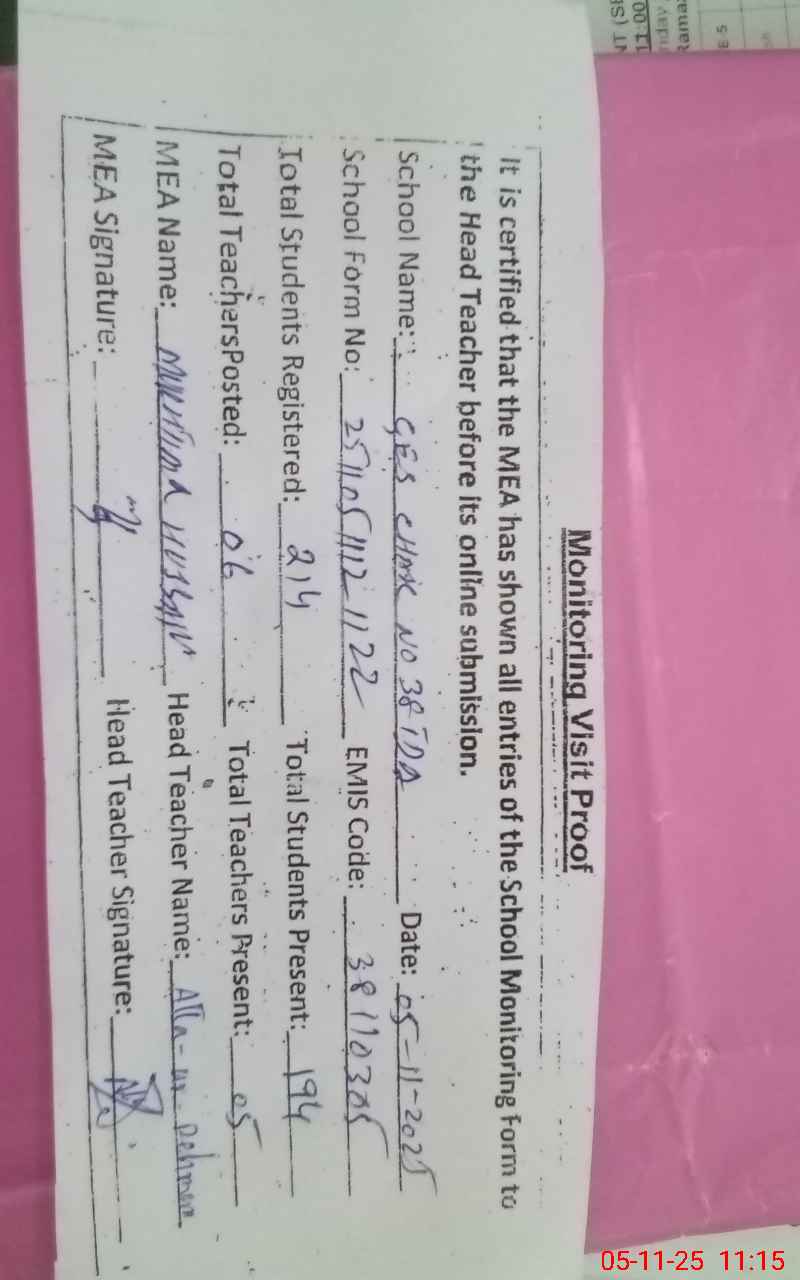 Monitoring Visit Proof
It is certified that the MEA has shown all entries of the School Monitoring Form to
the Head Teacher before its online submission.
School Name: GES CHAK NO 38 TDA Date: 05-11-2025
School Form No: 251105 1112 1122 EMIS Code: 38110305
Total Students Registered: 214 Total Students Present: 194
Total TeachersPosted: 06 Total Teachers Present: 05
MEA Name: Head Teacher Name: Atta-ur Rehman
MEA Signature: Head Teacher Signature:
05-11-25 11:15